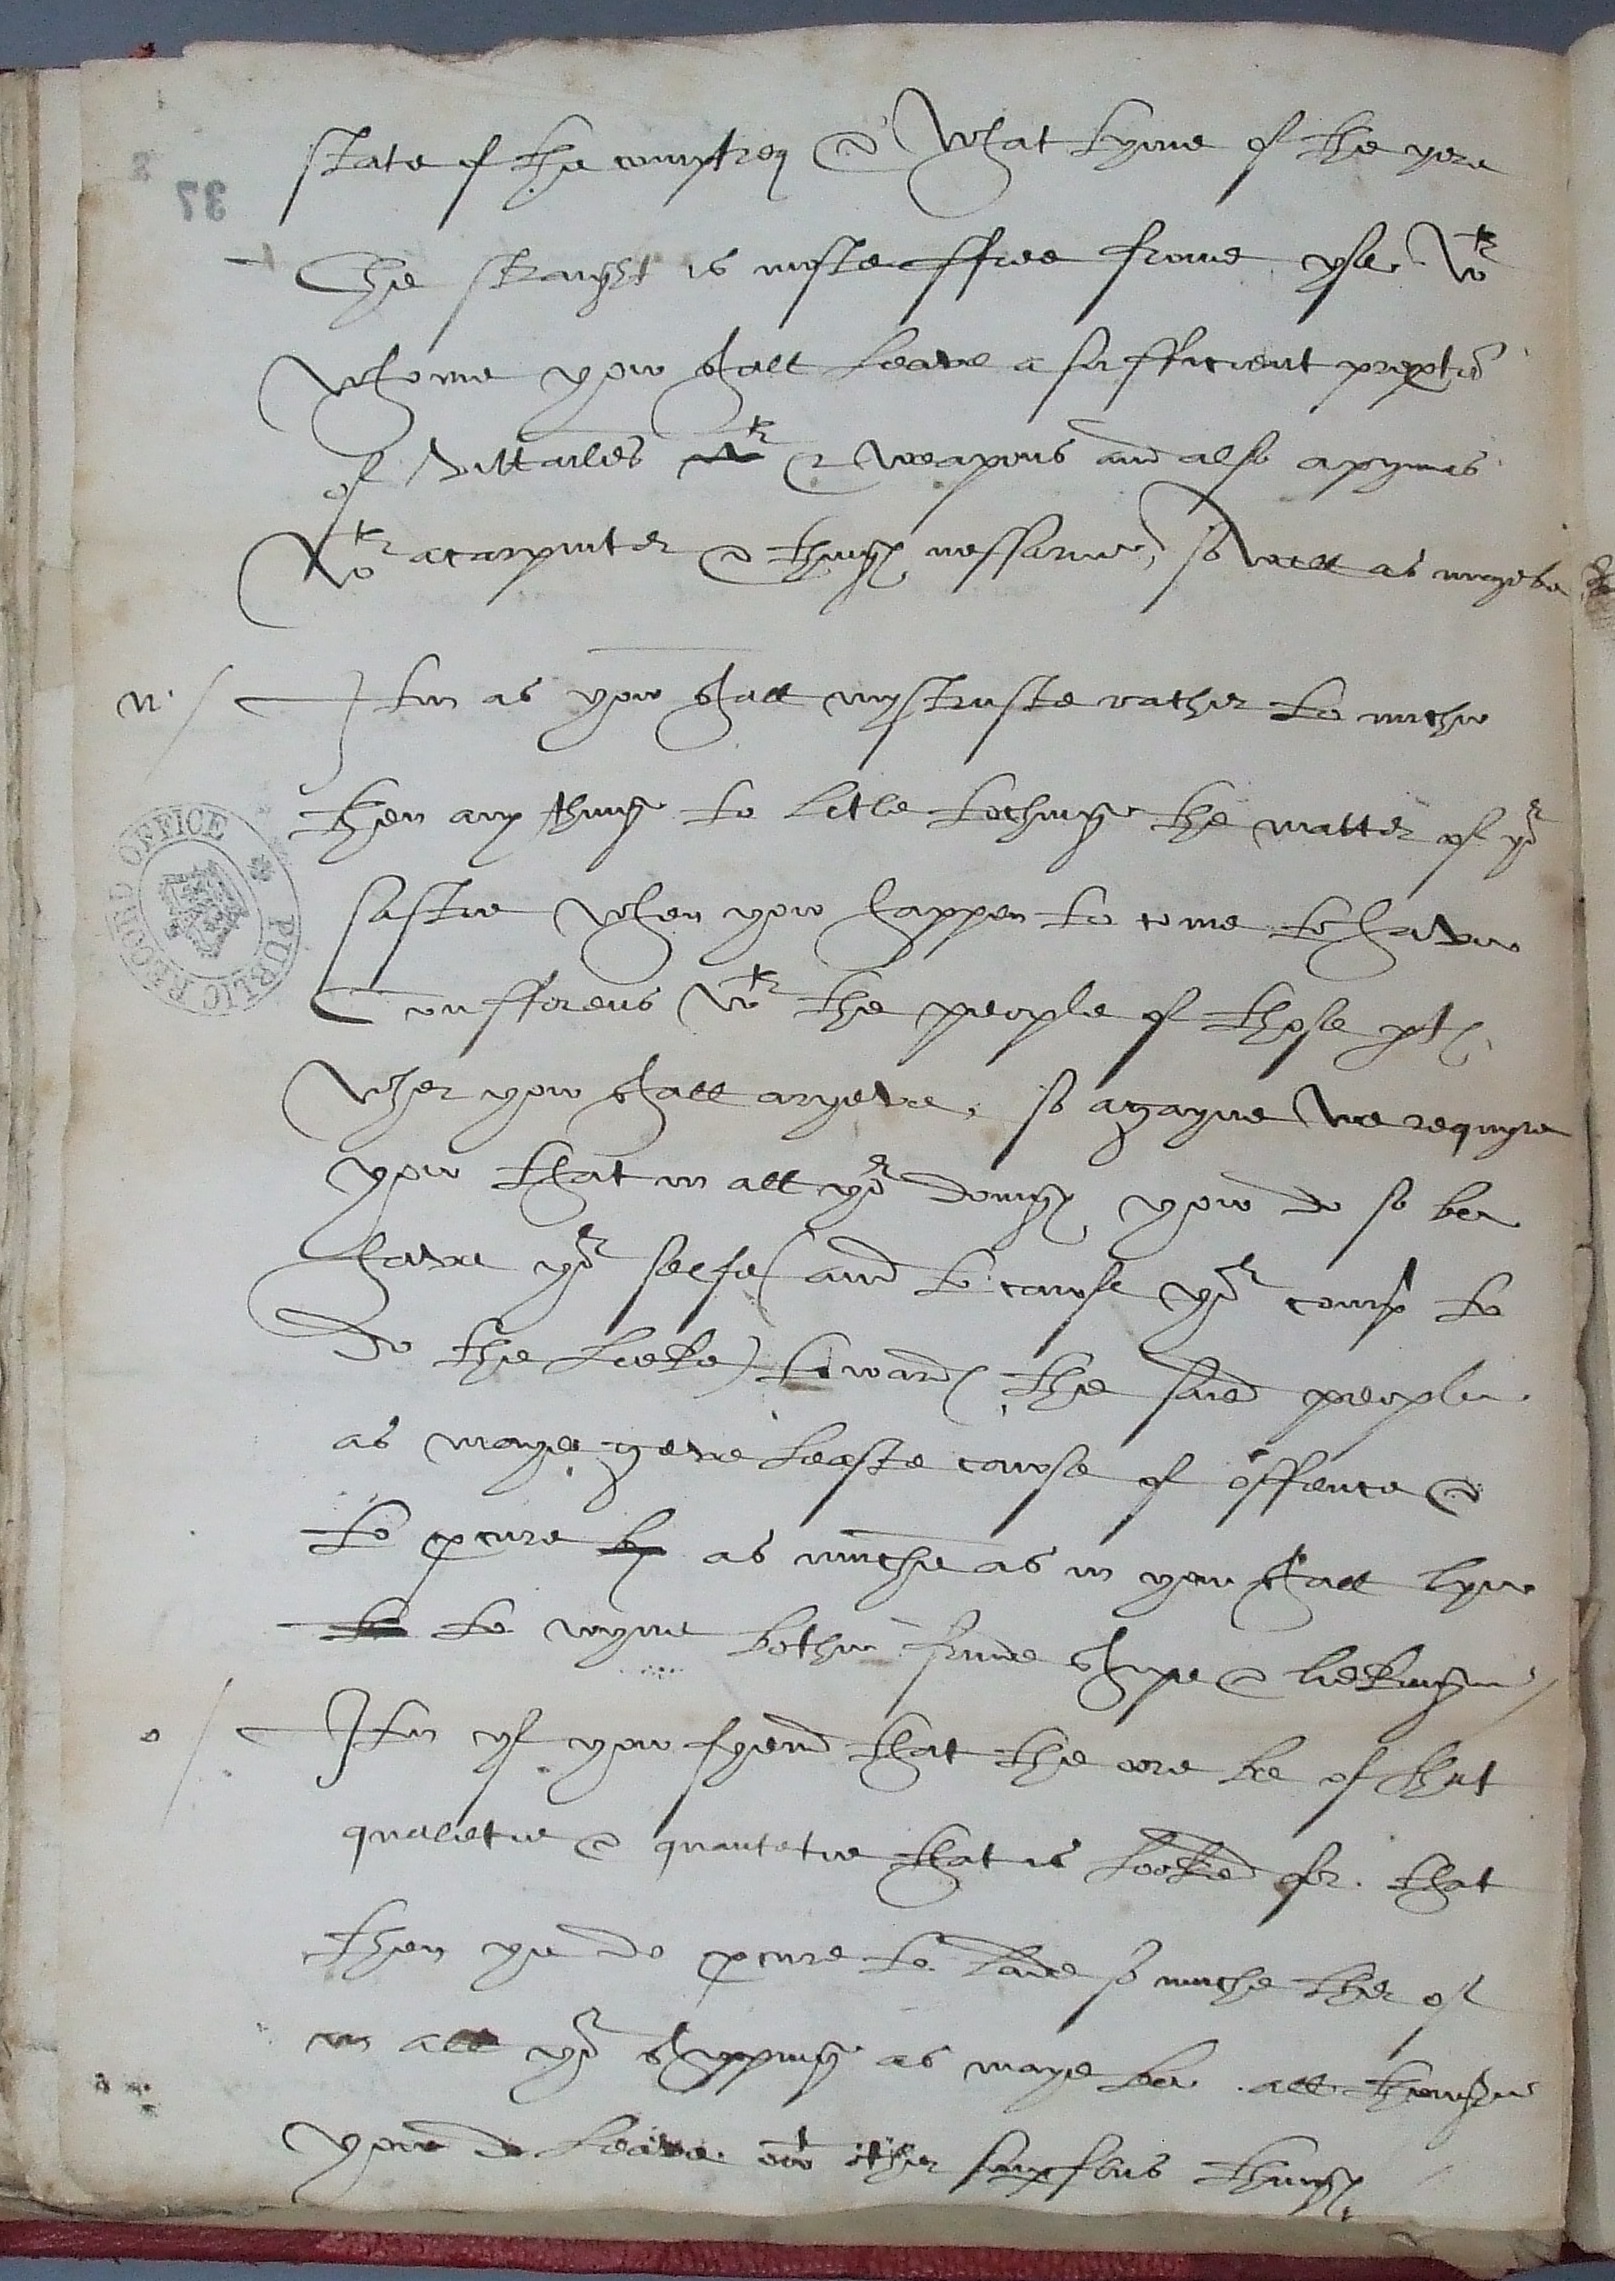 state of the countrey & what tyme of the yere
37
The straight is moste ffree frome yse. wth
whome yow shall leave a sufficient proportio
of vittailes & weapons and also a pynnes
wth a carpinter & things nessarie, so well as maye be
n. Itm as yow shall mystruste rather to muche
then any thing to litle towching the matter of yor
saftie when yow happen to come to have
Confferens wth the people of those pts
wher yow shall aryeve, so agayne we requyre
yow that in all yor doings yow do so be
have yor selfe (and to cause yor comp to
do the lieke) towards the saied people
as maye geve leaste cause of offence &
to pcure by as muche as in yow shall lye
to to wyne bothe frindeshipe & liekinge
o Itm yf yow fyend that the ore be of that
qualetie & quantetie that is looked for. that
then ye do pcure to lade so muche ther of
in all yor shipping as maye be. all thoughe
yow do leave owt other things
PUBLIC RECORD OFFICE